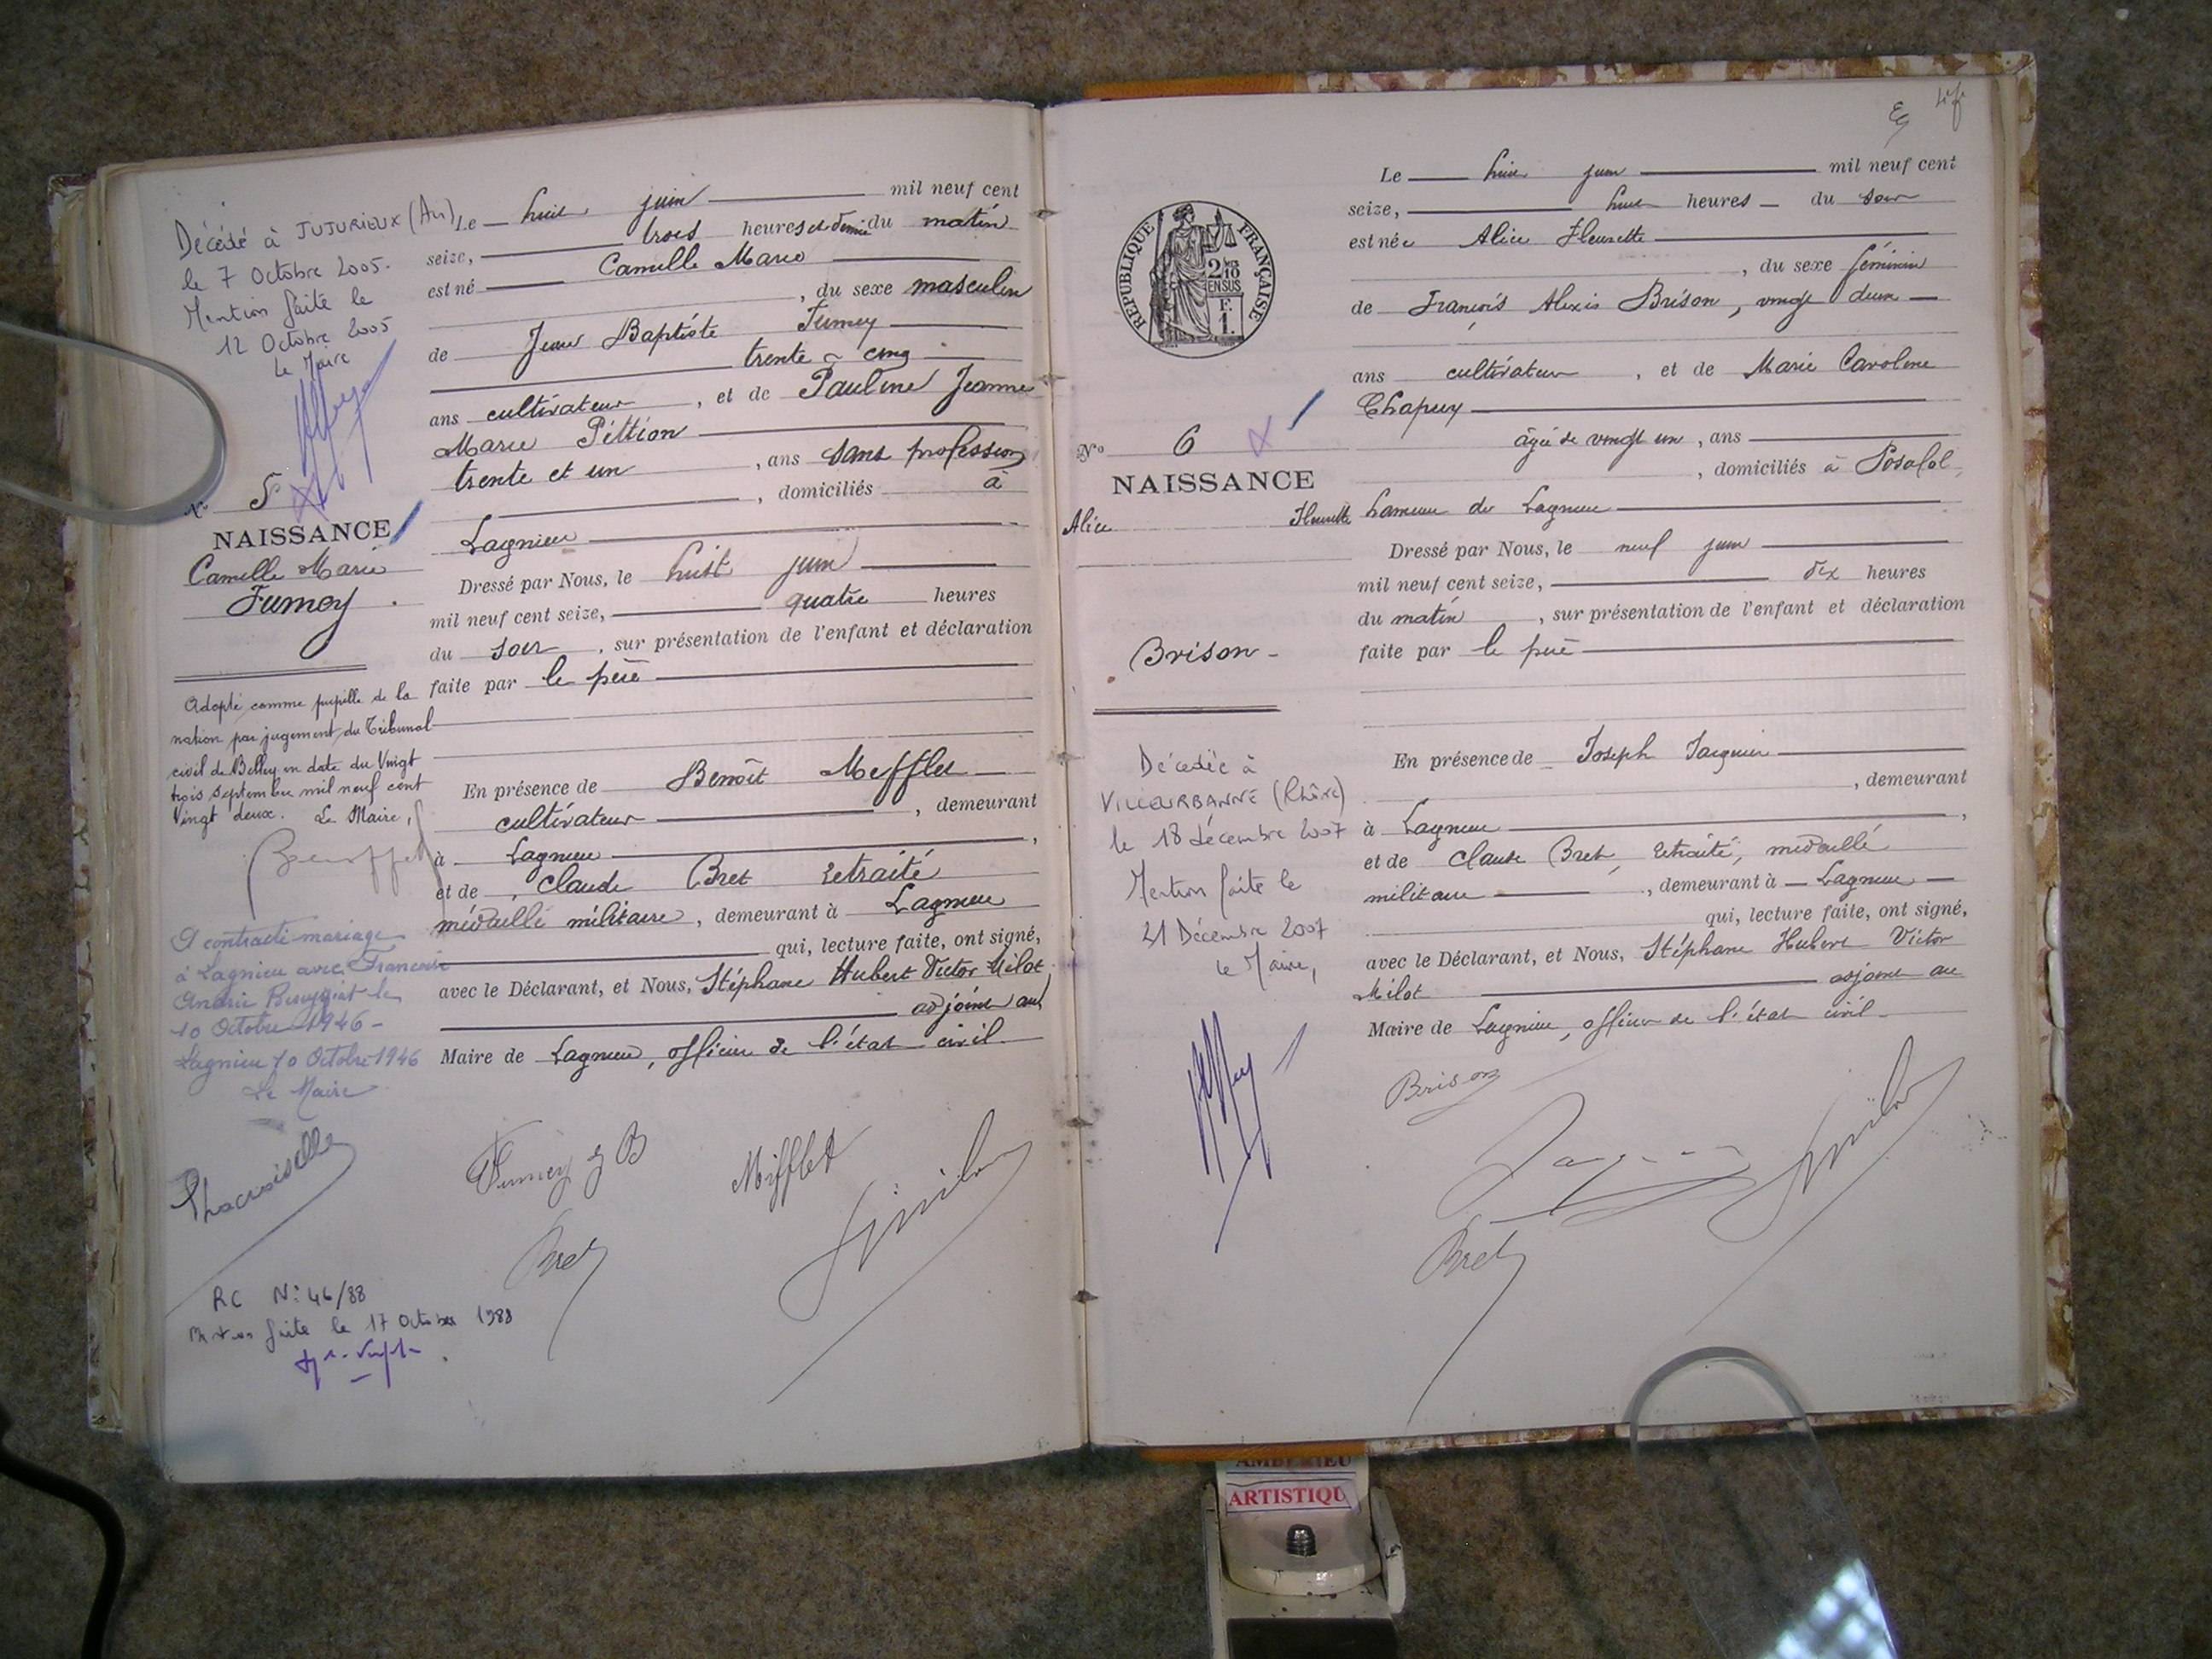 Décédé à JUJURIEUX (Ain)
le 7 Octobre 2005.
Mention faite le
12 Octobre 2005
Le Maire
N° 5
NAISSANCE
Camille Marie
Fumey
Adopté comme pupille de la
nation par jugement du Tribunal
civil de Belley en date du Vingt
trois septembre mil neuf cent
vingt deux. Le Maire,
A contracté mariage
à Lagnieu avec Francoise
le
10 Octobre 1946 -
Lagnieu 10 Octobre 1946
Le Maire
RC N° 46/88
Mention faite le 17 Octobre 1988
Le huit juin mil neuf cent
seize, trois heures et demie du matin
est né Camille Marie
, du sexe masculin
de Jean Baptiste Fumey
trente - cinq
ans cultivateur , et de Pauline Jeanne
Marie Pittion
trente et un , ans sans profession
, domiciliés à
Lagnieu
Dressé par Nous, le huit juin
mil neuf cent seize, quatre heures
du soir , sur présentation de l'enfant et déclaration
faite par le père
En présence de Benoît Mifflet
cultivateur , demeurant
à Lagnieu ,
et de , Claude Bret retraité
médaillé militaire , demeurant à Lagnieu
qui, lecture faite, ont signé,
avec le Déclarant, et Nous, Stéphane Hubert Victor Milot
adjoint au
Maire de Lagnieu, officier de l'état civil.
Fumey J B Mifflet
Bret
Le huit juin mil neuf cent
seize, huit heures du soir
est née Alice Fleurette
, du sexe féminin
de François Alexis Brison, vingt deux
ans cultivateur , et de Marie Caroline
Chapuy
âgée de vingt un , ans
, domiciliés à Posafol
hameau de Lagnieu
Dressé par Nous, le neuf juin
mil neuf cent seize, dix heures
du matin , sur présentation de l'enfant et déclaration
faite par le père
En présence de Joseph Jacquier
, demeurant
à Lagnieu ,
et de Claude Bret, retraité, médaillé
militaire , demeurant à Lagnieu
qui, lecture faite, ont signé,
avec le Déclarant, et Nous, Stéphane Hubert Victor
Milot adjoint au
Maire de Lagnieu, officier de l'état civil
Brison
Bret
RÉPUBLIQUE FRANÇAISE
2/10
EN SUS
F.
1.
N° 6
NAISSANCE
Alice Fleurette
Brison -
Décédée à
VILLEURBANNE (Rhône)
le 18 décembre 2007
Mention faite le
21 Décembre 2007
le Maire,
AMBERIEU
ARTISTIQU